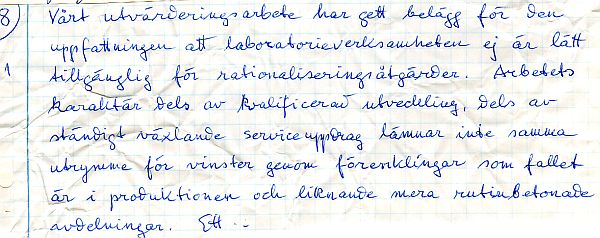 8) Vårt utvärderingsarbete har gett belägg för den
uppfattningen att laboratorieverksamheten ej är lätt
1 tillgänglig för rationaliseringsåtgärder. Arbetets
karaktär dels av kvalificerad utveckling, dels av
ständigt växlande serviceuppdrag lämnar inte samma
utrymme för vinster genom förenklingar som fallet
är i produktionen och liknande mera rutinbetonade
avdelningar. Ett ...